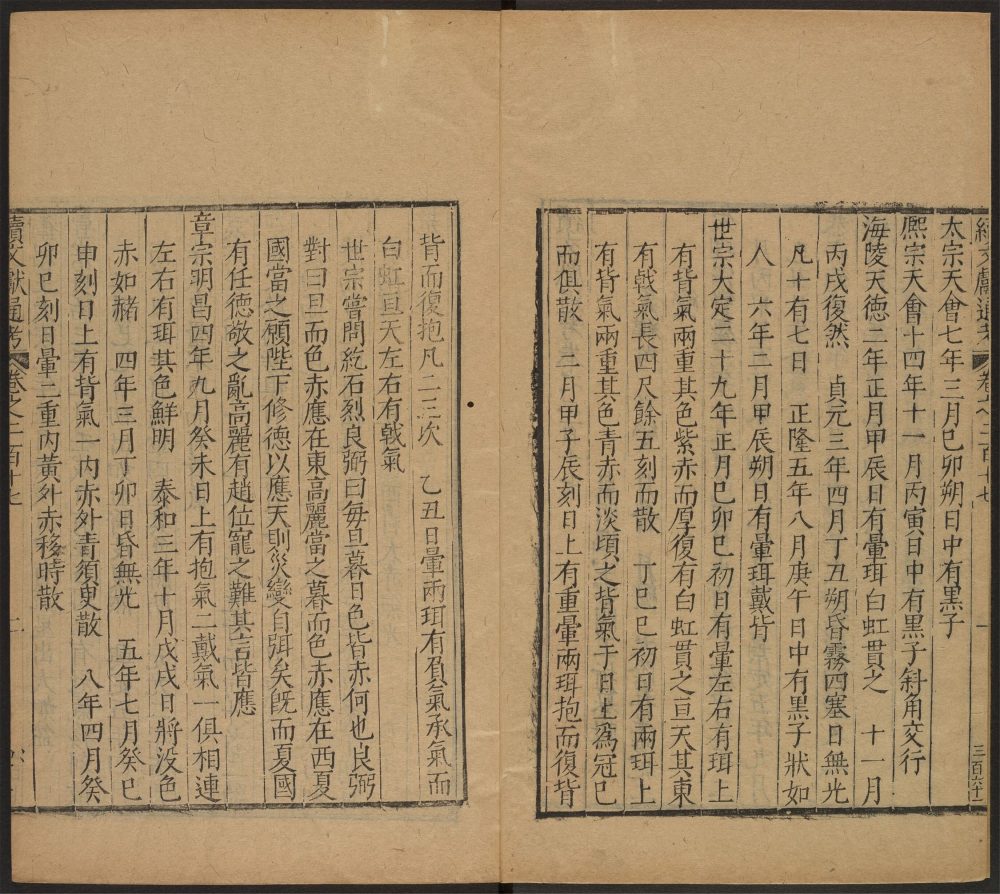 續文獻通考 卷之二百十七 一 三百六十一
太宗天會七年三月己卯朔日中有黑子
熈宗天會十四年十一月丙寅日中有黑子斜角交行
海陵天德二年正月甲辰日有暈珥白虹貫之 十一月
丙戌復然 貞元三年四月丁丑朔昏霧四塞日無光
凡十有七日 正隆五年八月庚午日中有黑子狀如
人 六年二月甲辰朔日有暈珥戴背
世宗大定二十九年正月己卯巳初日有暈左右有珥上
有背氣兩重其色紫赤而厚復有白虹貫之亘天其東
有戟氣長四尺餘五刻而散 丁巳巳初日有兩珥上
有背氣兩重其色青赤而淡頃之背氣于日上爲冠已
而俱散 二月甲子辰刻日上有重暈兩珥抱而復背
背而復抱凡二三次 乙丑日暈兩珥有負氣承氣而
白虹亘天左右有戟氣
世宗嘗問紇石烈良弼曰每旦暮日色皆赤何也良弼
對曰旦而色赤應在東高麗當之暮而色赤應在西夏
國當之願陛下修德以應天則災變自弭矣旣而夏國
有任德敬之亂高麗有趙位寵之難其言皆應
章宗明昌四年九月癸未日上有抱氣二戴氣一俱相連
左右有珥其色鮮明 泰和三年十月戊戌日將没色
赤如赭 四年三月丁卯日昏無光 五年七月癸巳
申刻日上有背氣一内赤外青須臾散 八年四月癸
卯巳刻日暈二重内黄外赤移時散
續文獻通考 卷之二百十七 二